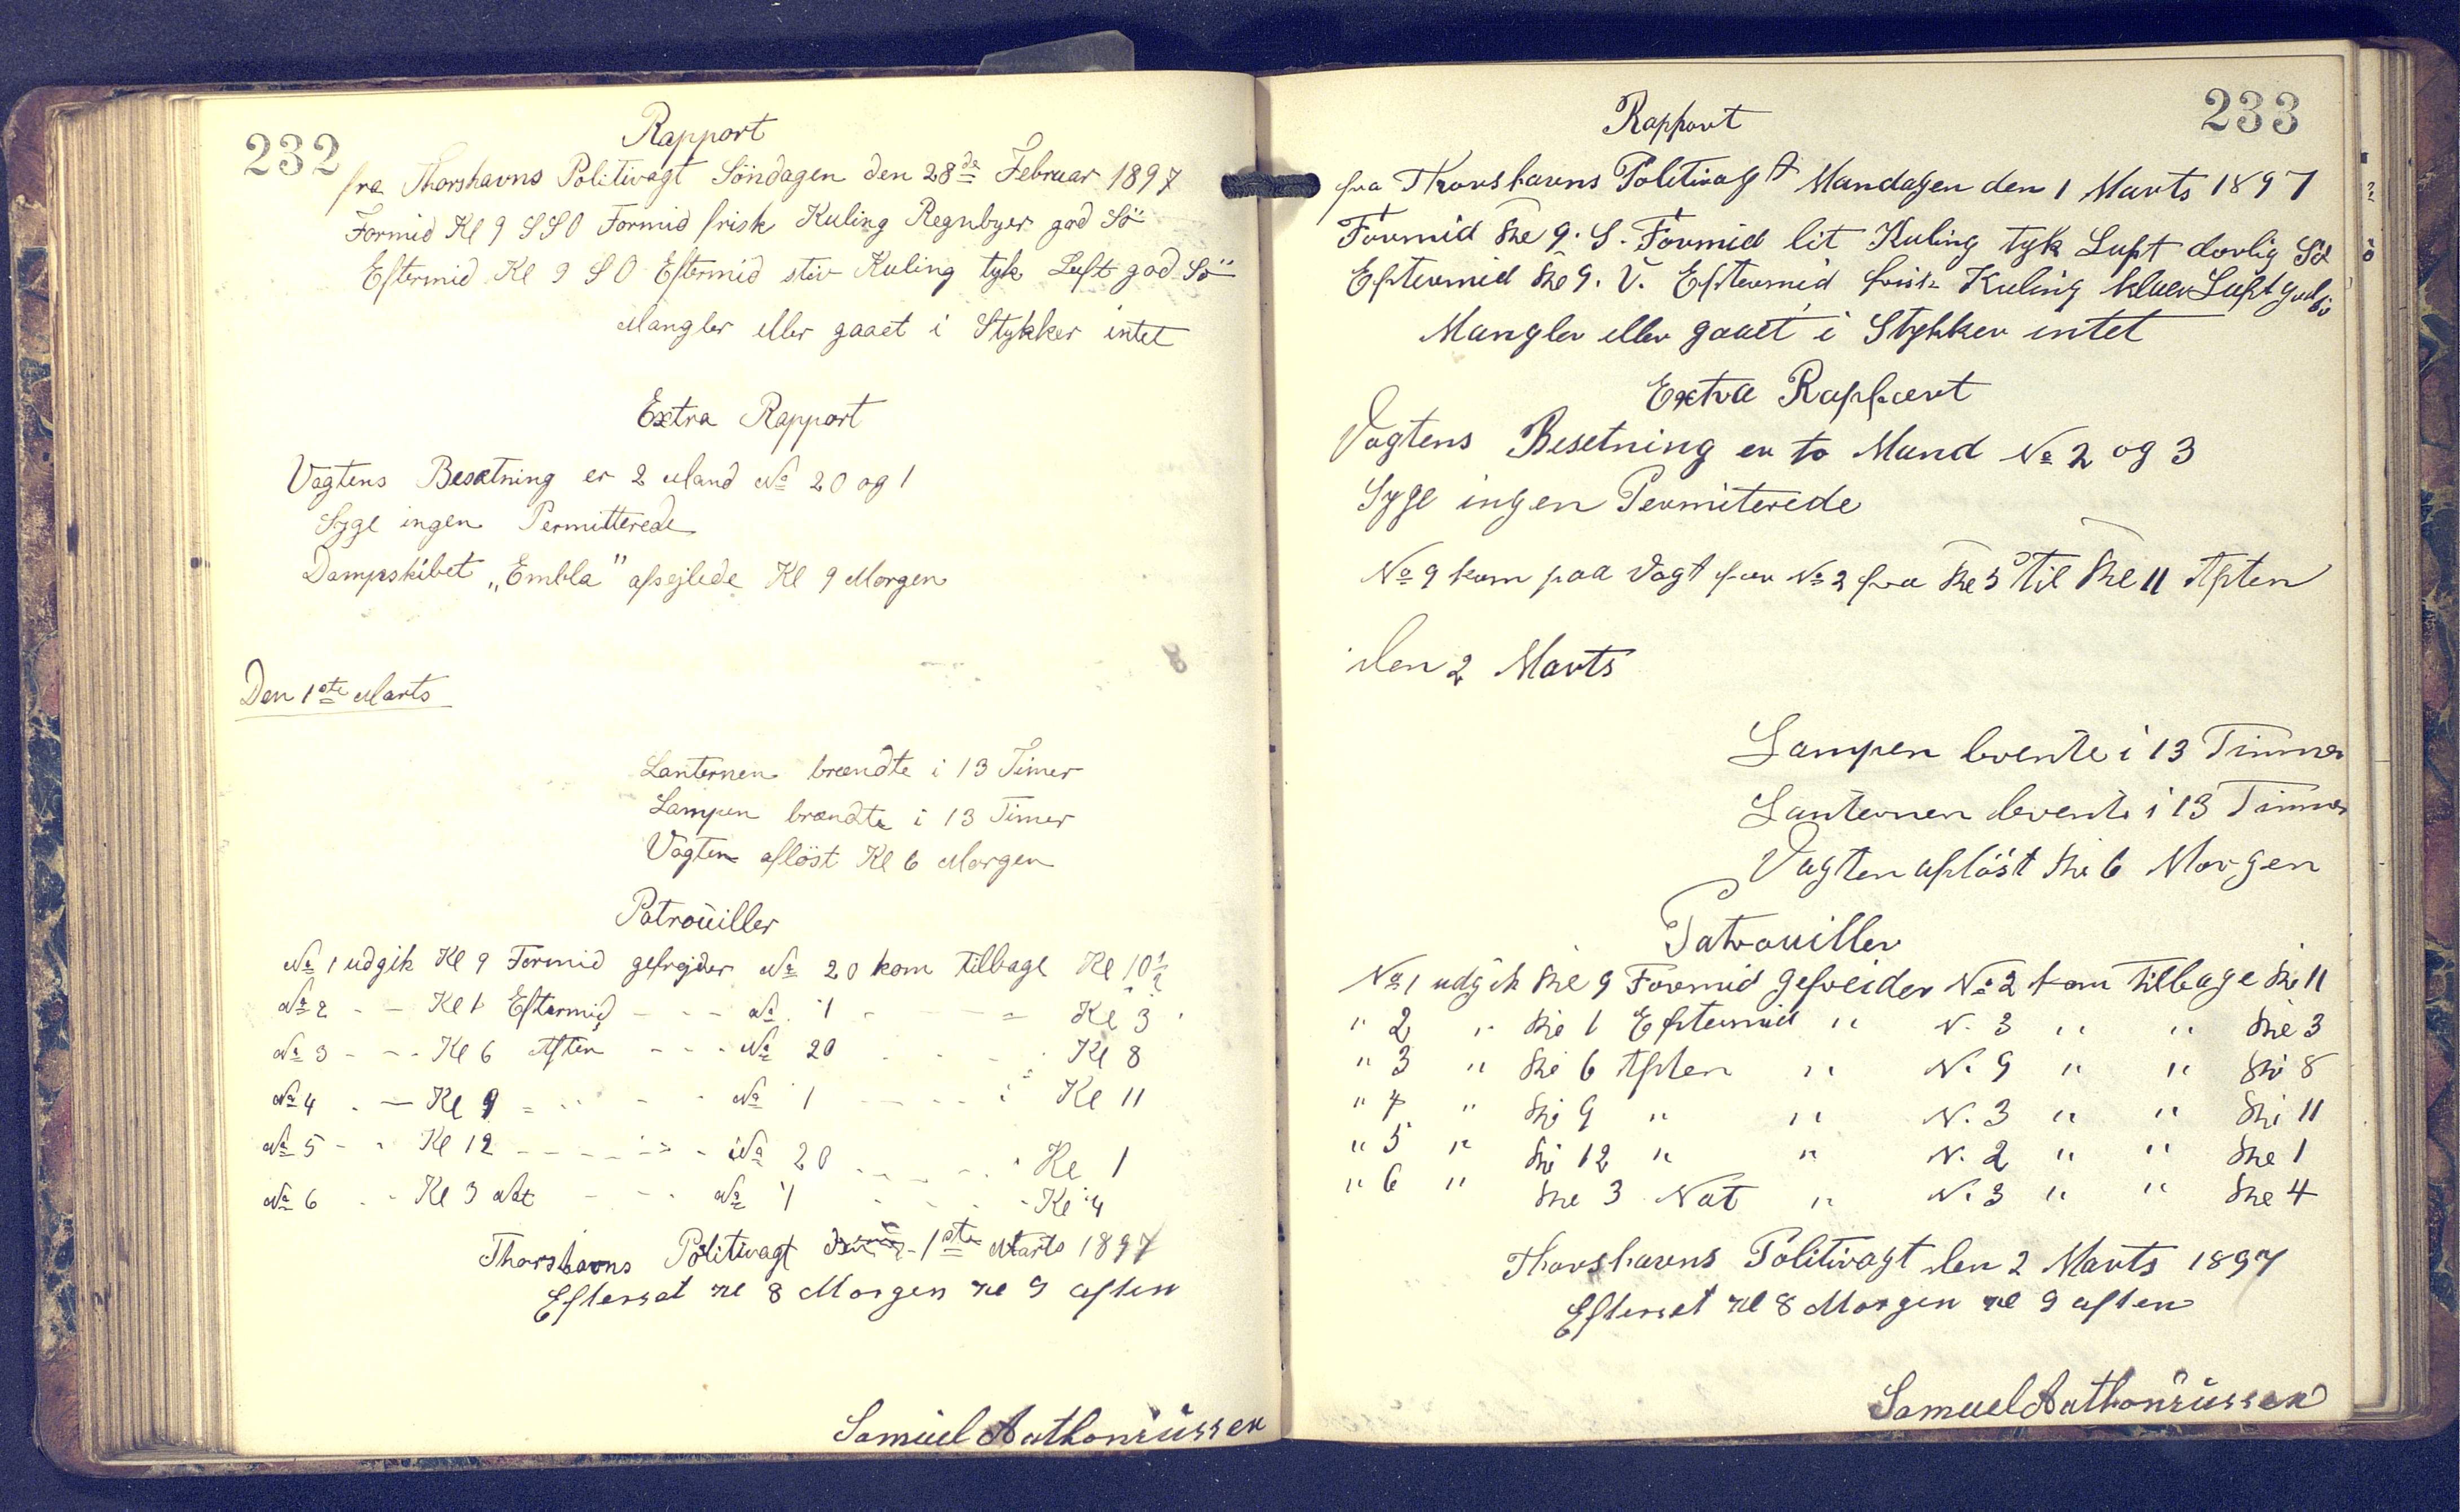 232
Rapport
fra Thorshavns Politivagt Söndagen den 28de Februar 1897
Formid Kl 9 SSO Formid frisk Kuling Regnbyer god Sö
Eftermid Kl 9 SO Eftermid stiv Kuling tyk Luft god Sö
Mangler eller gaaet i Stykker intet
Extra Rapport
Vagtens Besætning er 2 Mand No 20 og 1
Syge ingen Permitterede
Dampskibet „Embla" afsejlede Kl 9 Morgen
Den 1ste Marts
Lanternen brændte i 13 Timer
Lampen brændte i 13 Timer
Vagten aflöst Kl 6 Morgen
Patrouiller
No 1 udgik Kl 9 Formid gefrejder No 20 kom tilbage Kl 10½
No 2 - - Kl 1 Eftermid - - - No 1 - - - Kl 3
No 3 - - - Kl 6 Aften - - - No 20 - - - Kl 8
No 4 - - Kl 9 - - - - No 1 - - - - Kl 11
No 5 - - Kl 12 - - - - - No 20 - - - - Kl 1
No 6 - - Kl 3 Nat - - - No 1 - - - Kl 4
Thorshavns Politivagt 1ste Marts 1897
Efterset Kl 8 Morgen Kl 9 aften
Samuel Anthoniussen
233
Rapport
fra Thorshavns Politivagt Mandagen den 1 Marts 1897
Formid Kl 9. S. Formid lit Kuling tyk Luft dorlig Sö
Eftermid Kl 9. V. Eftermid frisk Kuling klaer Luft god Sö
Mangler eller gaaet i Stykker intet
Extra Rapport
Vagtens Besetning er to Mand No 2 og 3
Syge ingen Permiterede
No 9 kom paa Vagt for No 2 fra Kl 5 til Kl 11 Aften
den 2 Marts
Lampen brente i 13 Timmer
Lanternen brente i 13 Timmer
Vagten aflöst Kl 6 Morgen
Patrouiller
No 1 udgik Kl 9 Formid gefreider No 2 kom tilbage Kl 11
" 2 " Kl 1 Eftermid " N. 3 " " Kl 3
" 3 " Kl 6 Aften " N. 9 " " Kl 8
" 4 " Kl 9 " " N. 3 " " Kl 11
" 5 " Kl 12 " " N. 2 " " Kl 1
" 6 " Kl 3 Nat " N. 3 " " Kl 4
Thorshavns Politivagt den 2 Marts 1897
Efterset Kl 8 Morgen Kl 9 aften
Samuel Anthoniussen